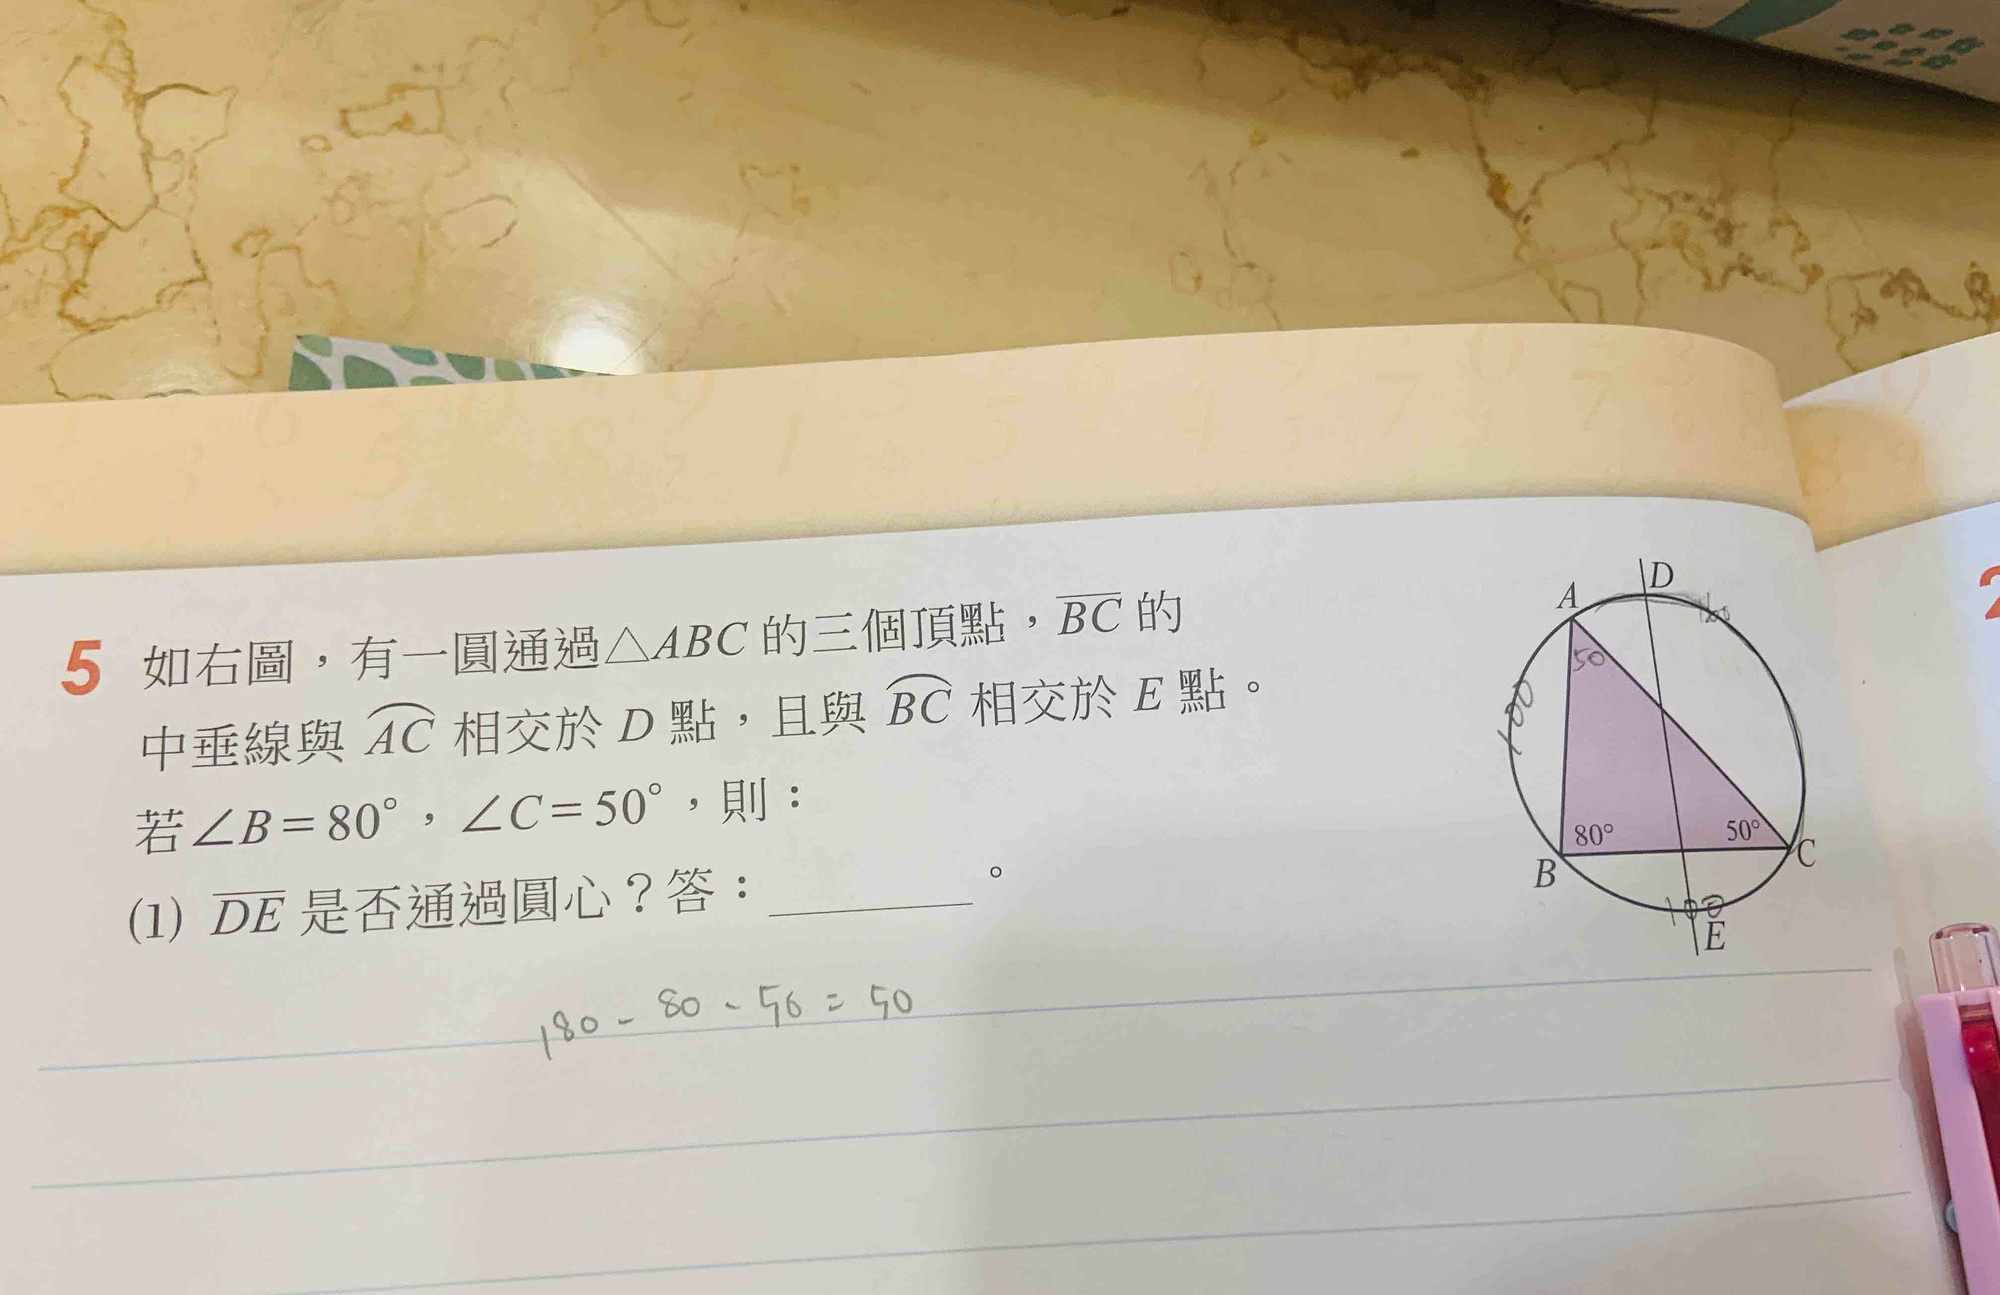 5 如右圖，有一圓通過△ABC 的三個頂點，BC 的
中垂線與 AC 相交於 D 點，且與 BC 相交於 E 點。
若∠B=80°，∠C=50°，則：
(1) DE 是否通過圓心？答：________。
180 - 80 - 50 = 50
A
D
50
100
80°
50°
B
C
100
E
2